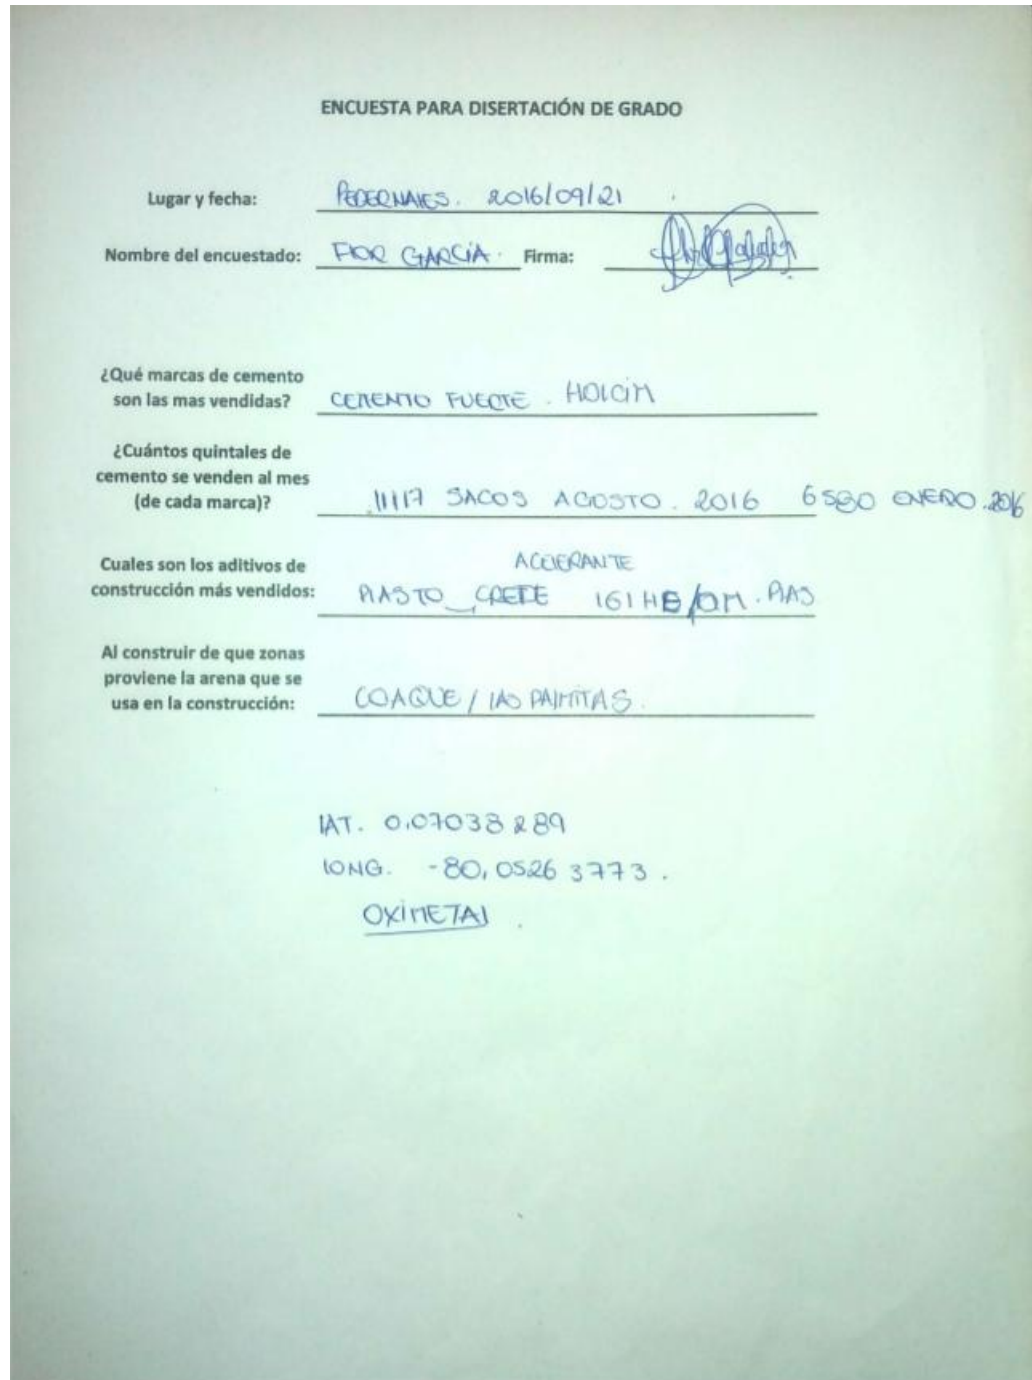 ENCUESTA PARA DISERTACIÓN DE GRADO
Lugar y fecha: PEDERNALES. 2016/09/21
Nombre del encuestado: FLOR GARCÍA. Firma:
¿Qué marcas de cemento
son las mas vendidas? CEMENTO FUERTE. HOLCIM
¿Cuántos quintales de
cemento se venden al mes
(de cada marca)? 11117 SACOS AGOSTO. 2016 6580 ENERO.2016
Cuales son los aditivos de ACELERANTE
construcción más vendidos: PLASTO CRETE 161 HE/DM. PLAS
Al construir de que zonas
proviene la arena que se
usa en la construcción: COAQUE / LAS PALMITAS.
LAT. 0,07038289
LONG. -80,05263773.
OXIMETAL.